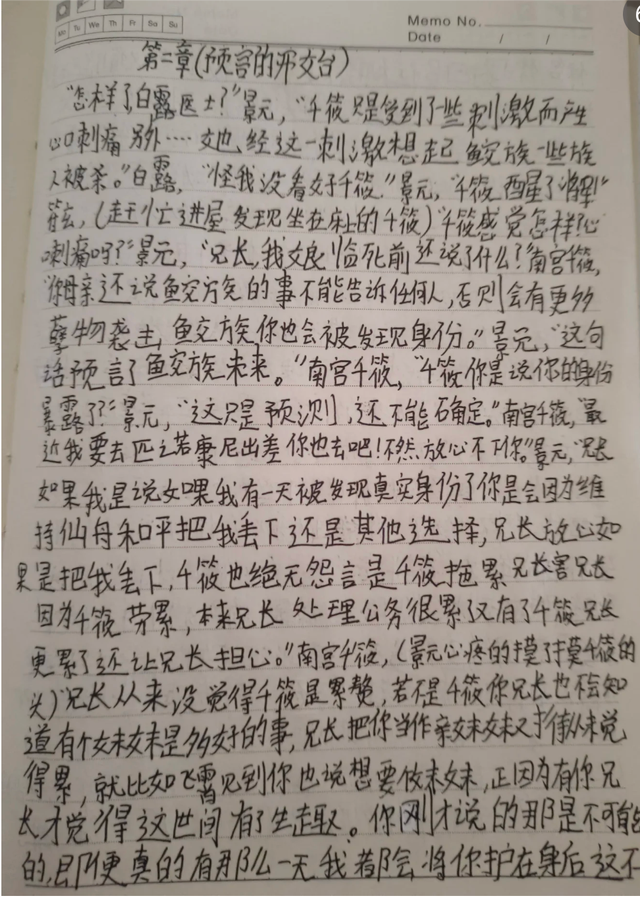 Memo No.
Mo Tu We Th Fr Sa Su
Date / /
第二章(预言的邪交台)
“怎样了,白露医士?”景元,“千筱只是受到了一些刺激而产生
心口刺痛 另外……她经这一刺激想起鲛族一些族
人被杀。”白露,“怪我没看好千筱.”景元,“千筱醒了”
符玄,(赶忙进屋发现坐在床上的千筱)“千筱感觉怎样?心
刺痛吗?”景元,“兄长,我父母临死前还说了什么?”南宫千筱,
“你母亲还说鱼交方族的事不能告诉任何人,否则会有更多
孽物袭击鱼交族你也会被发现身份。”景元,“这句
话预言了鱼交族未来。”南宫千筱,“千筱你是说你的身份
暴露了?”景元,“这只是预测,还不能确定。”南宫千筱,“最
近我要去匹诺康尼出差你也去吧!不然放心不下你。”景元,“兄长
如果我是说如果我有一天被发现真实身份了你是会因为维
持仙舟和平把我丢下还是其他选择,兄长放心如
果是把我丢下,千筱也绝无怨言是千筱拖累兄长害兄长
因为千筱劳累,本来兄长处理公务很累又有了千筱兄长
更累了还让兄长担心。”南宫千筱,(景元心疼的摸了摸千筱的
头)“兄长从来没觉得千筱是累赘,若不是千筱你兄长也不会知
道有个妹妹是多好的事,兄长把你当作亲妹妹对待从未觉
得累,就比如飞霄见到你也说想要做妹妹,正因为有你兄
长才觉得这世间有了生趣。你刚才说的那是不可能
的,即便真的有那么一天我都会将你护在身后这不